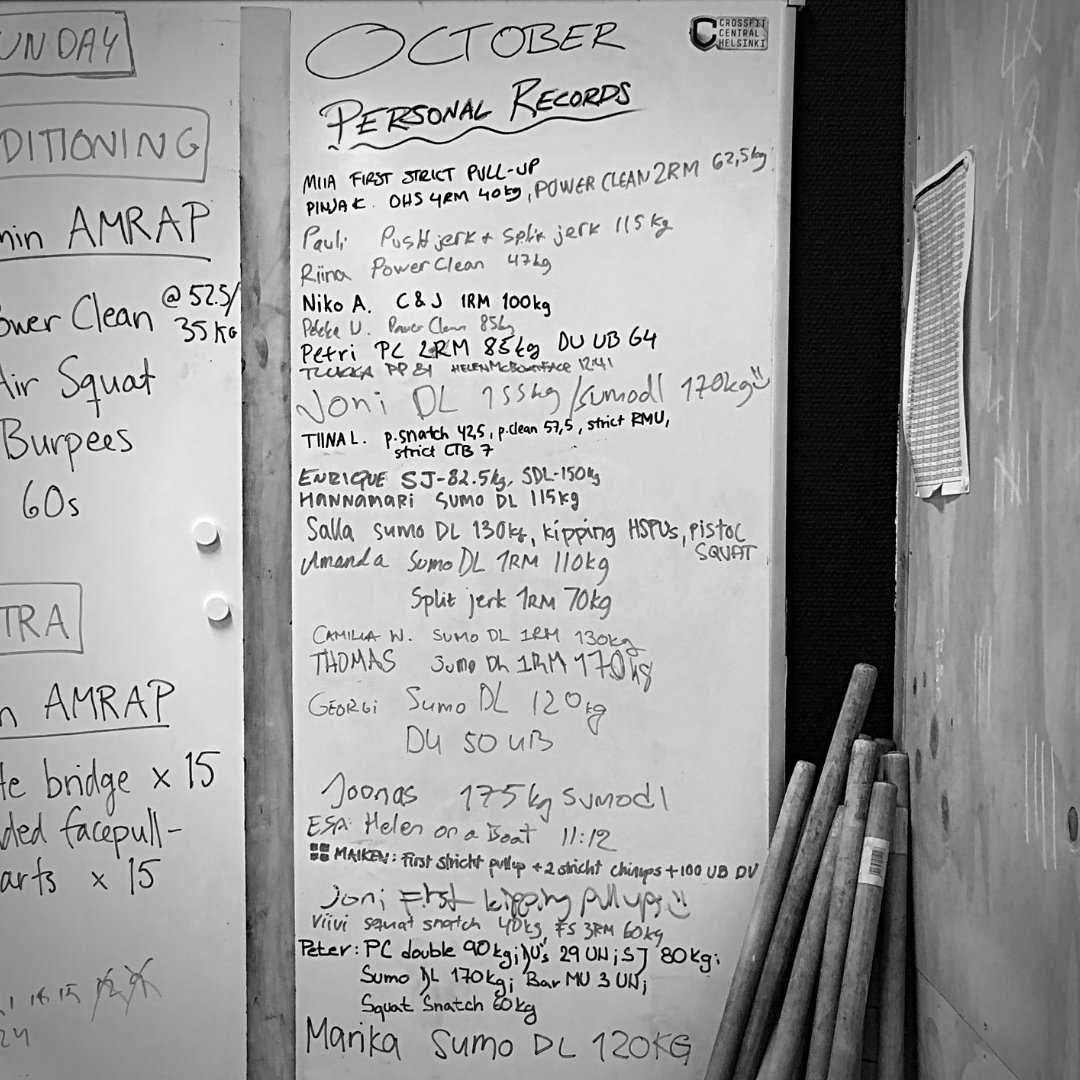 UNDAY
DITIONING
min AMRAP
ower Clean @ 52.5/
35 KG
Air Squat
Burpees
60s
TRA
n AMRAP
te bridge x 15
ded facepull-
arts x 15
OCTOBER
CROSSFIT
CENTRAL
HELSINKI
PERSONAL RECORDS
MIIA FIRST STRICT PULL-UP
PINJA K. OHS 4RM 40kg, POWER CLEAN 2RM 62,5kg
Pauli Push jerk + Split jerk 115 kg
Riina Power Clean 47kg
Niko A. C & J 1RM 100kg
Pekka U. Power Clean 85kg
Petri PC 2RM 85kg DU UB 64
PP 81 HELEN McBOATFACE 12:41
Joni DL 155kg/sumodl 170kg
TIINA L. p.snatch 42,5, p.clean 57,5, strict RMU,
strict CTB 7
ENRIQUE SJ-82.5kg, SDL-150kg
HANNAMARI SUMO DL 115kg
Salla sumo DL 130kg, kipping HSPUs, pistol
SQUAT
Amanda Sumo DL 1RM 110kg
Split jerk 1RM 70kg
CAMILLA W. SUMO DL 1RM 130kg
THOMAS Sumo DL 1RM 170kg
GEORGI Sumo DL 120kg
DU 50 UB
Joonas 175kg sumodl
ESA: Helen on a Boat 11:12
MAIKEN: First stricht pullup + 2 stricht chinups + 100 UB DU
Joni First kipping pullups
Viivi squat snatch 40kg, FS 3RM 60kg
Peter: PC double 90kg; DU's 29 UN; SJ 80kg;
Sumo DL 170kg; Bar MU 3 UN;
Squat Snatch 60kg
Marika Sumo DL 120KG